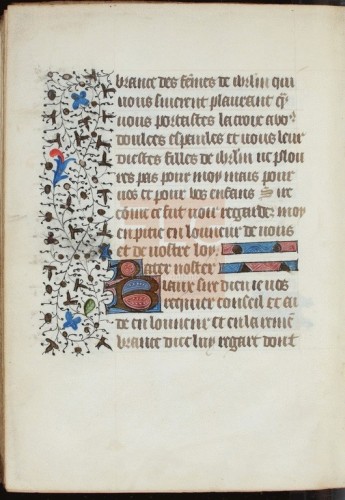 brance des fēmes de ihrlm qui
vous suivirent plourant qͥ
vous portastes la croix a vos
doulces espaules et vous leur
dictes filles de ihrlm ne plou
res pas pour moy mais pour
vos et pour vos enfans Sire
cōme ce fut voir regardez moy
en pitie en lonneur de vous
et de nostre loy.
Pater noster
Biau sire dieu ie vos
requier conseil et ai
de en lonneur et en la remē
brance dicelui regart dont